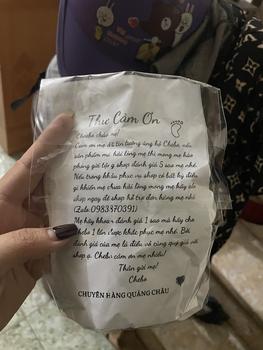 Thư Cảm Ơn
Chebo chào mẹ!
Cảm ơn mẹ đã tin tưởng ủng hộ Chebo, nếu
sản phẩm mẹ hài lòng mẹ thì mong mẹ báo
phóng gửi tặng shop đánh giá 5 sao mẹ nhé.
Nếu trong khâu phục vụ shop có bất kỳ điều
gì khiến mẹ chưa hài lòng mong mẹ hãy nhắn
shop ngay để shop hỗ trợ đơn hàng mẹ nhé
(Zalo 0983870391)
Mẹ hãy khoan đánh giá 1 sao mà hãy cho
Chebo 1 lần được khắc phục mẹ nhé. Bởi
đánh giá của mẹ là điều vô cùng quý giá với
shop ạ. Chebo cảm ơn mẹ nhiều!
Thân gửi mẹ!
Chebo
CHUYÊN HÀNG QUẢNG CHÂU